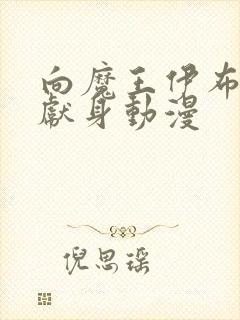 向魔王伊布
獻身動漫
倪思瑶